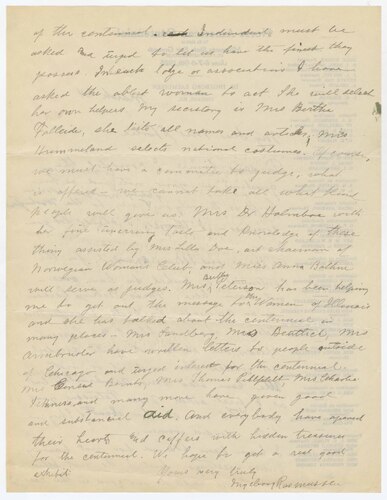 of the centennial. Individuals must be
asked and urged to let us have the finest they
possess. In each lodge or association I have
asked the ablest women to act. She will select
her own helpers. My secretary is Mrs Bertha
she lists all names and articles, Mrs
selects national costumes. Of course,
we must have a committee to judge, what
is offered - we cannot take all what kind
people will give us. Mrs Dr Holmboe with
her fine unerring taste and knowledge of these
things assisted by Mrs Lilla Doe, art chairman of
Norwegian Womans Club, and Miss Anna
will serve as judges. Mrs. Betty Peterson has been helping
me to get out the message to the Women of Illinois
and she has talked about the centennial in
many places. Mrs Sandberg, Mrs Mrs
Armbruster have written letters to people outside
of Chicago and urged interest for the centennial.
Mrs Mrs Thomas Mrs Charles
and many more have given good
and substancial aid. And everybody have opened
their hearts and coffers with hidden treasures
for the centennial. We hope to get a real good
exhibit
Yours very truly
Ingeborg Rasmussen